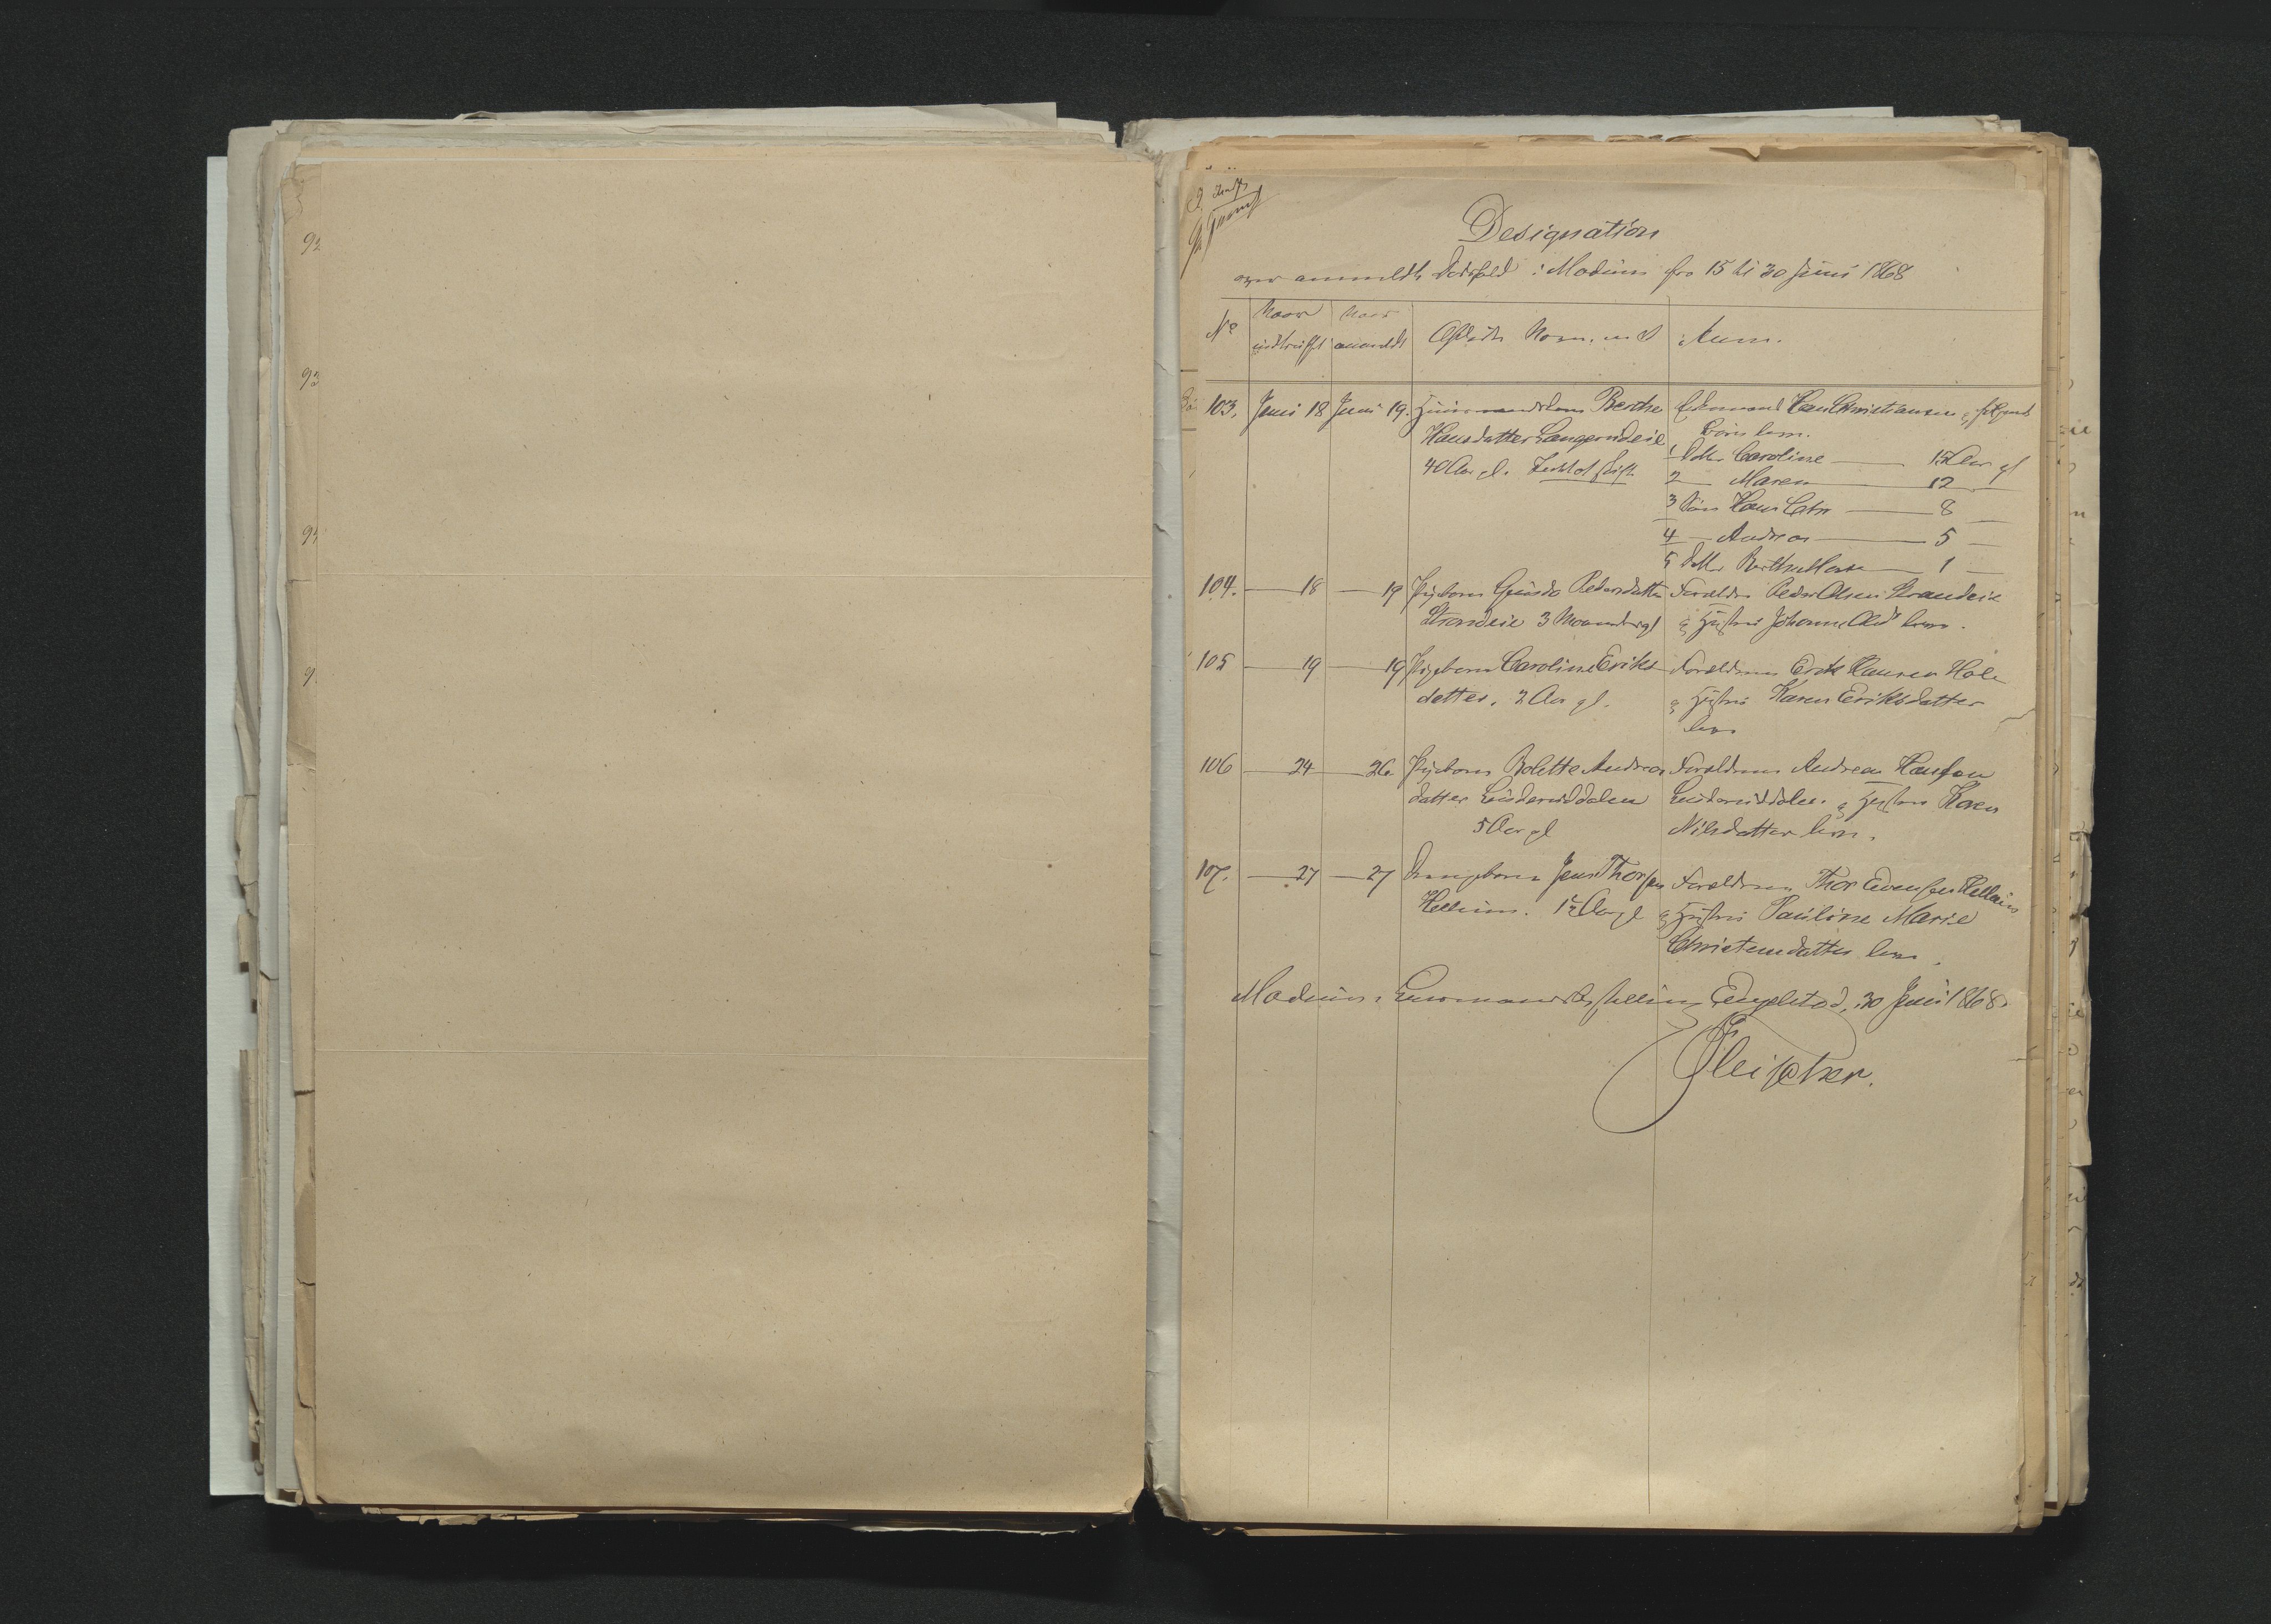 92
93
94
9
Designation
over anmeldte Dødsfald i Modum fra 15 til 30 Juni 1868
No
Naar indtruffet
Naar anmeldt
Afdødes Navn. m. v.
Anm.
103. Juni 18 Juni 19. Huusmandskone Berthe
Hansdatter Langerudeie
40 Aar gl.
Enkemand Hans Christiansen & følgende
Børn lever.
1 Datter Caroline — 15 Aar gl
2 — Maren — 12 —
3 Søn Hans Chr — 8 —
4 — Andreas — 5 —
5 Datter Berthe Marie — 1 —
104. — 18 — 19 Pigebarn Gunda Pedersdatter
Strandeie 3 Maaneder gl
Forældre Peder Olsen Strandeie
& Hustru Johanne Olsd lever.
105 — 19 — 19 Pigebarn Caroline Eriks
datter. 2 Aar gl.
Forældrene Erik Hansen Hole
& Hustru Karen Eriksdatter
lever
106 — 24 — 26 Pigebarn Bolette Andreas
datter Linderuddalen
5 Aar gl
Forældrene Andreas Hansen
Linderuddalen & Hustru Karen
Nilsdatter lever.
107. — 27 — 27 Drengebarn Jens Thorsen
Hellum. 1½ Aar gl
Forældrene Thor Evensen Hellum
& Hustru Pauline Marie
Christensdatter lever.
Modums Lensmandsbestilling Engelstad, 30 Juni 1868.
Fleischer.